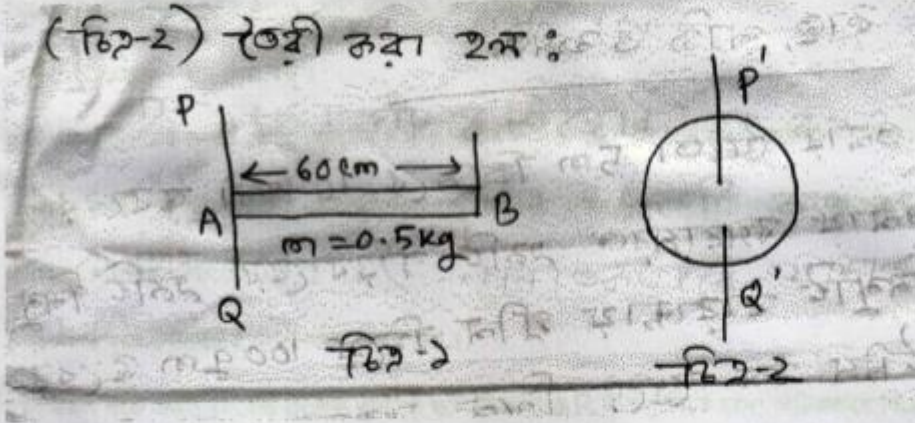 (চিত্র-২) তৈরী করা হল :
P
P'
60 cm
A
B
m = 0.5kg
Q
Q'
চিত্র-১
চিত্র-২